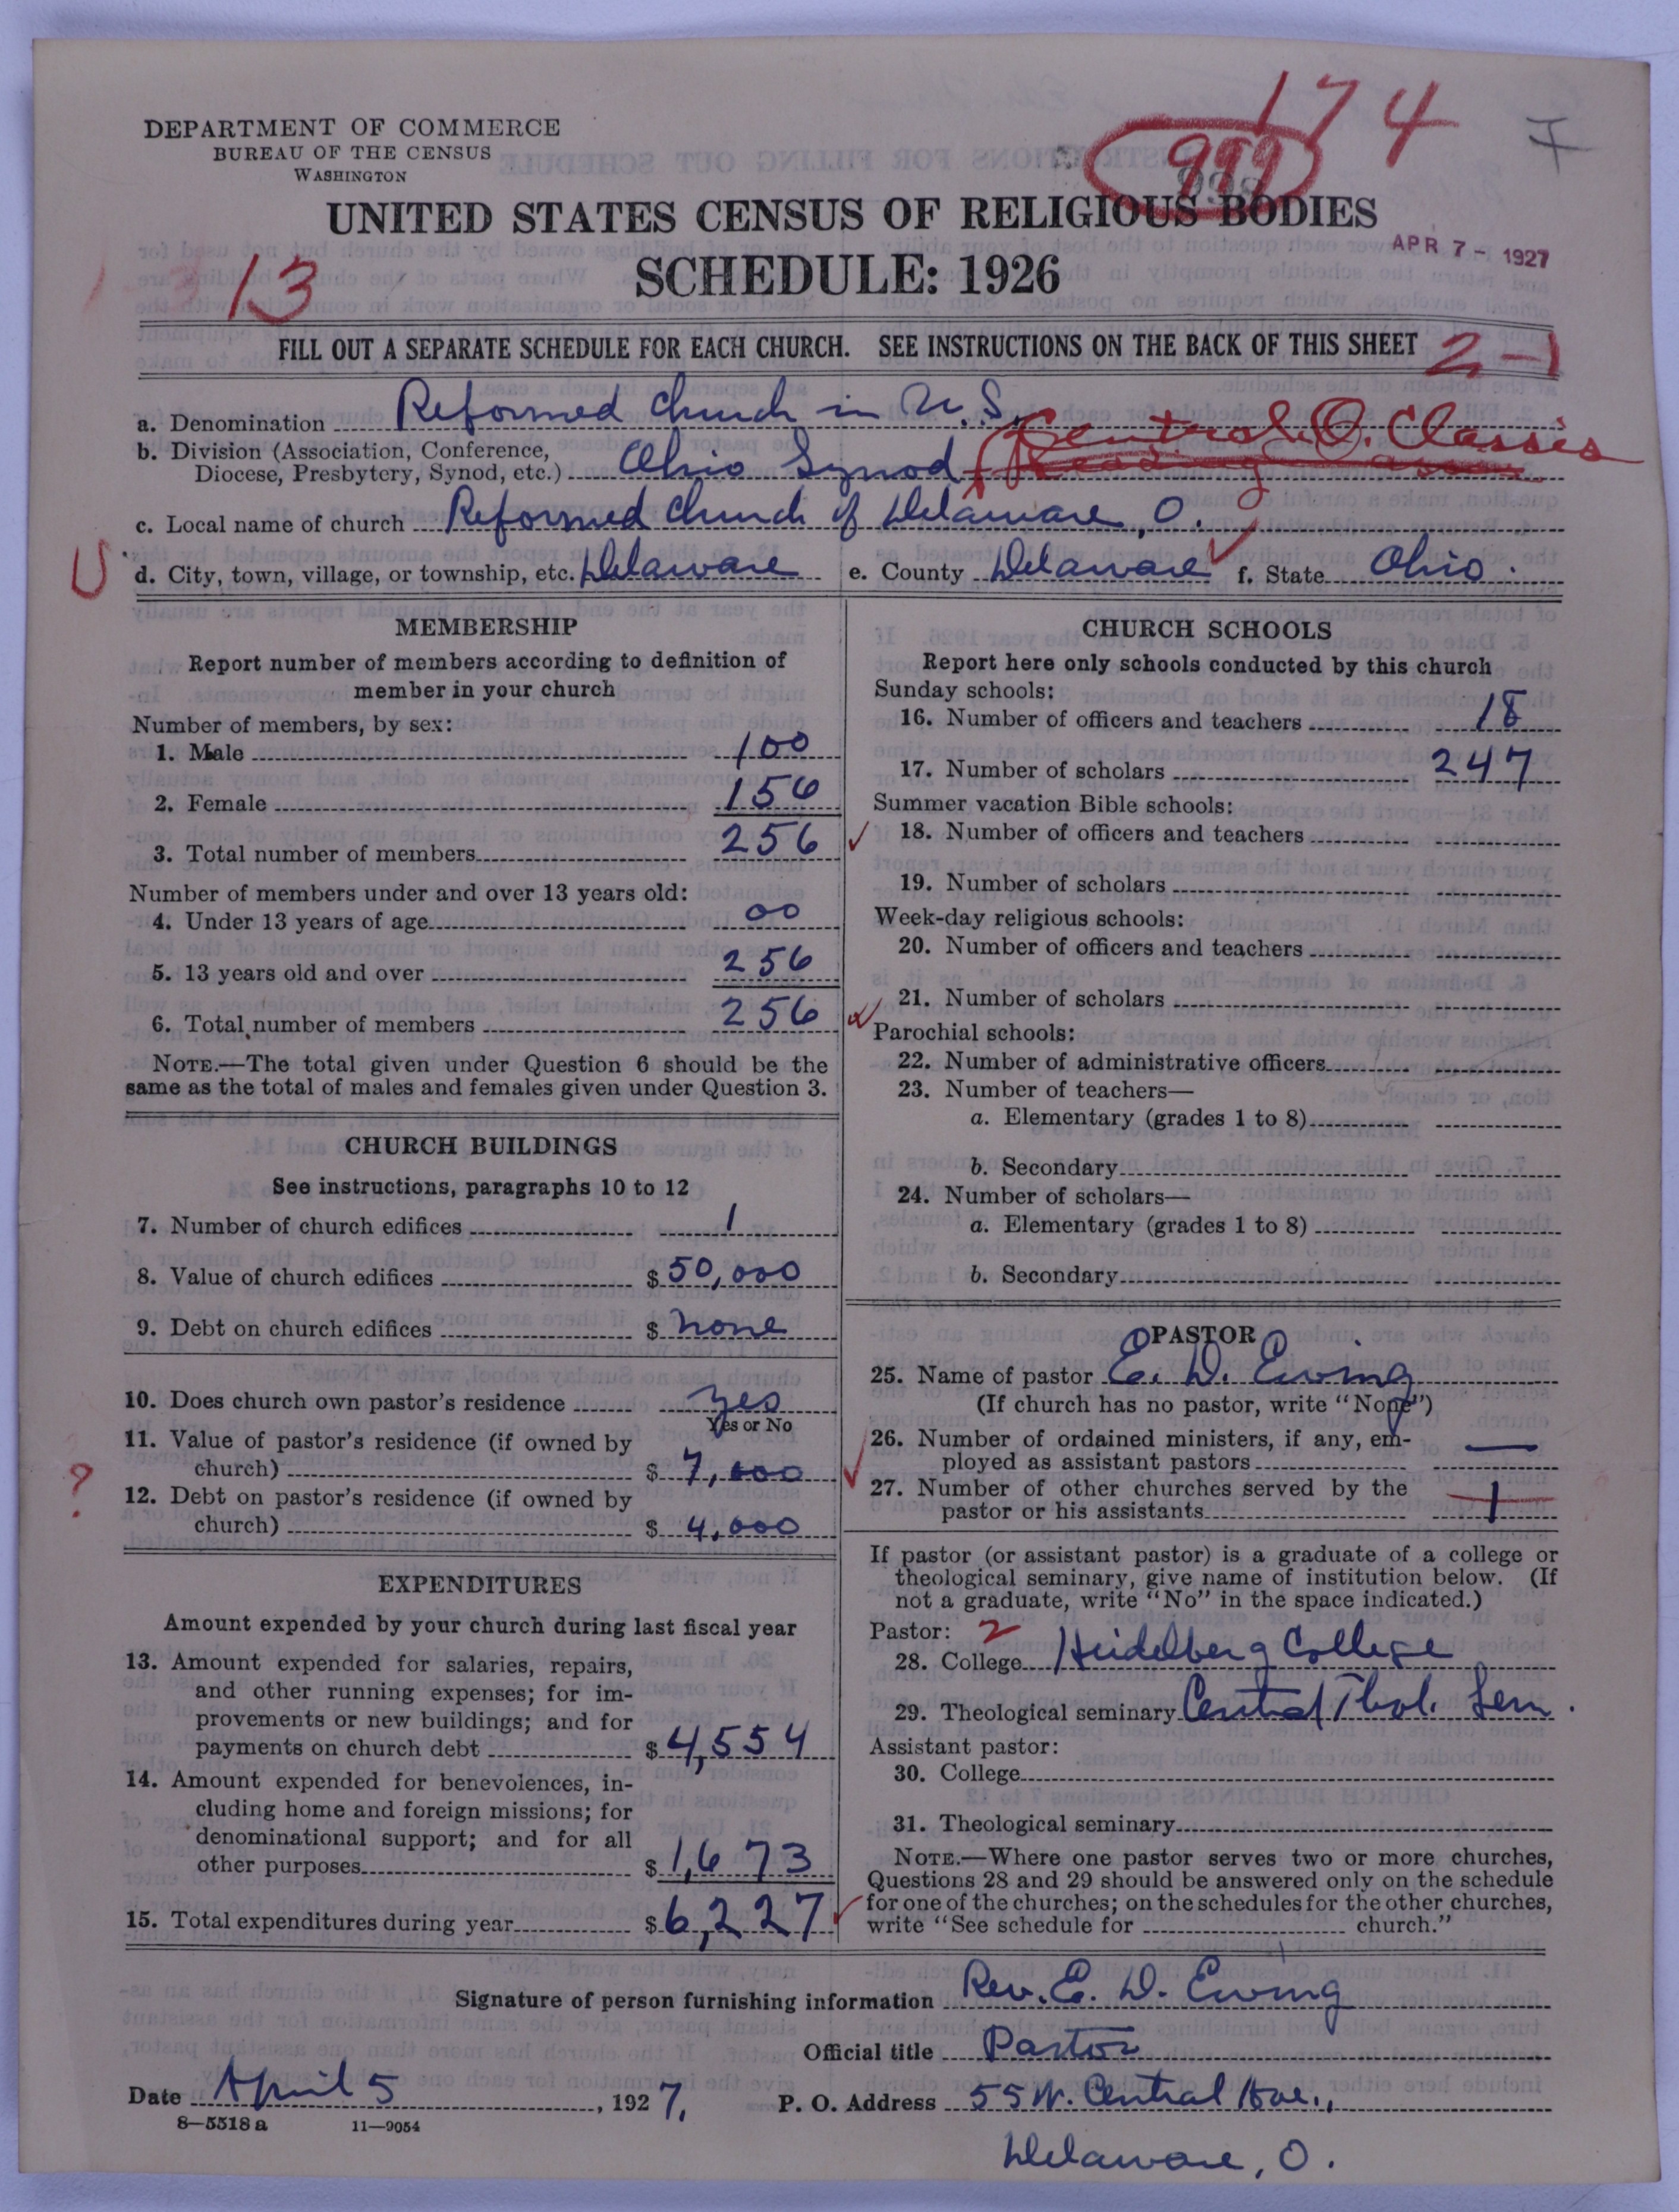 174
7
DEPARTMENT OF COMMERCE
BUREAU OF THE CENSUS
WASHINGTON
999
UNITED STATES CENSUS OF RELIGIOUS BODIES
APR 7 - 1927
SCHEDULE: 1926
13
FILL OUT A SEPARATE SCHEDULE FOR EACH CHURCH. SEE INSTRUCTIONS ON THE BACK OF THIS SHEET
2-1
a. Denomination Reformed Church in U.S.
b. Division (Association, Conference,
Diocese, Presbytery, Synod, etc.) Ohio Synod Central O. Classis
c. Local name of church Reformed Church of Delaware, O.
d. City, town, village, or township, etc. Delaware e. County Delaware f. State Ohio.
MEMBERSHIP
Report number of members according to definition of
member in your church
Number of members, by sex:
1. Male 100
2. Female 156
3. Total number of members 256
Number of members under and over 13 years old:
4. Under 13 years of age 00
5. 13 years old and over 256
6. Total number of members 256
NOTE.—The total given under Question 6 should be the
same as the total of males and females given under Question 3.
CHURCH BUILDINGS
See instructions, paragraphs 10 to 12
7. Number of church edifices 1
8. Value of church edifices $ 50,000
9. Debt on church edifices $ none
10. Does church own pastor's residence yes
Yes or No
11. Value of pastor's residence (if owned by
church) $ 7,000
?
12. Debt on pastor's residence (if owned by
church) $ 4,000
EXPENDITURES
Amount expended by your church during last fiscal year
13. Amount expended for salaries, repairs,
and other running expenses; for im-
provements or new buildings; and for
payments on church debt $ 4,554
14. Amount expended for benevolences, in-
cluding home and foreign missions; for
denominational support; and for all
other purposes $ 1,673
15. Total expenditures during year $ 6,227
CHURCH SCHOOLS
Report here only schools conducted by this church
Sunday schools:
16. Number of officers and teachers 18
17. Number of scholars 247
Summer vacation Bible schools:
18. Number of officers and teachers
19. Number of scholars
Week-day religious schools:
20. Number of officers and teachers
21. Number of scholars
Parochial schools:
22. Number of administrative officers
23. Number of teachers—
a. Elementary (grades 1 to 8)
b. Secondary
24. Number of scholars—
a. Elementary (grades 1 to 8)
b. Secondary
PASTOR
25. Name of pastor E. D. Ewing
(If church has no pastor, write "None")
26. Number of ordained ministers, if any, em-
ployed as assistant pastors —
27. Number of other churches served by the
pastor or his assistants 1
If pastor (or assistant pastor) is a graduate of a college or
theological seminary, give name of institution below. (If
not a graduate, write "No" in the space indicated.)
Pastor: 2
28. College Heidelberg College
29. Theological seminary Central Thol. Sem.
Assistant pastor:
30. College
31. Theological seminary
NOTE.—Where one pastor serves two or more churches,
Questions 28 and 29 should be answered only on the schedule
for one of the churches; on the schedules for the other churches,
write "See schedule for church."
Signature of person furnishing information Rev. E. D. Ewing
Official title Pastor
Date April 5, 1927. P. O. Address 55 W. Central Ave.,
8-5518 a 11-9054
Delaware, O.